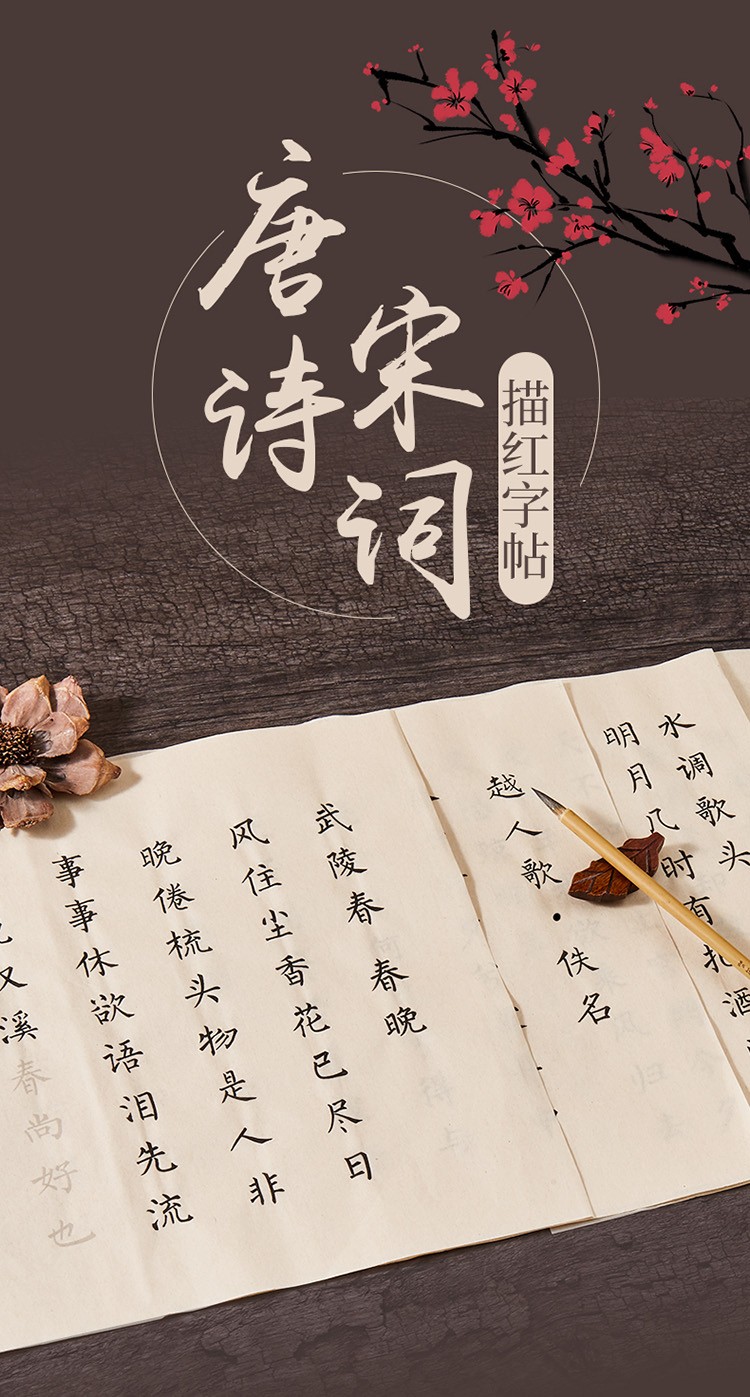 唐诗
宋词
描红字帖
水调歌头
明月几时有把酒
越人歌·佚名
武陵春 春晚
风住尘香花已尽日
晚倦梳头物是人非
事事休欲语泪先流
溪春尚好也